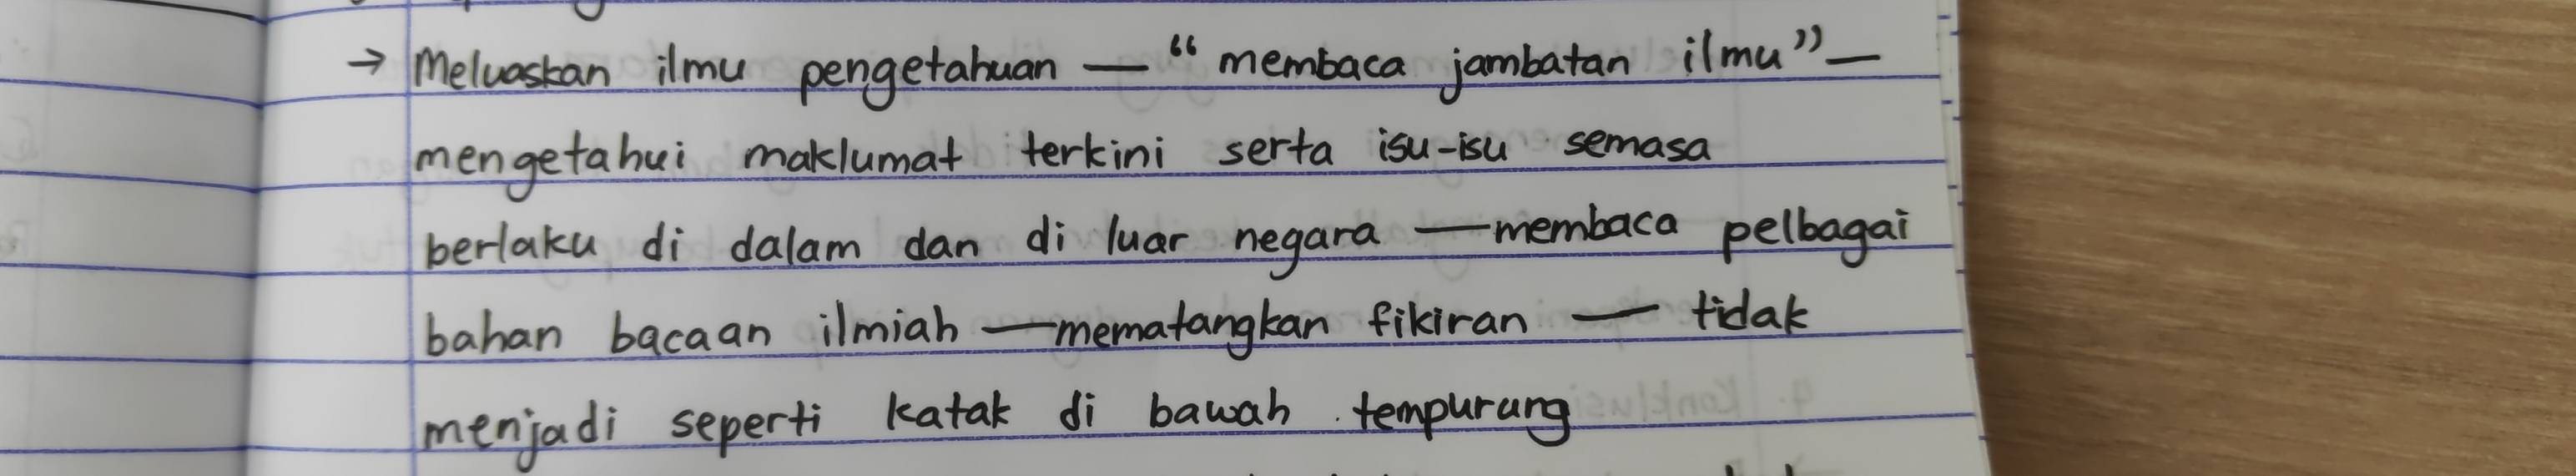 → Meluaskan ilmu pengetahuan — “ membaca jambatan ilmu ” —
mengetahui maklumat terkini serta isu-isu semasa
berlaku di dalam dan di luar negara — membaca pelbagai
bahan bacaan ilmiah — mematangkan fikiran — tidak
menjadi seperti katak di bawah tempurung